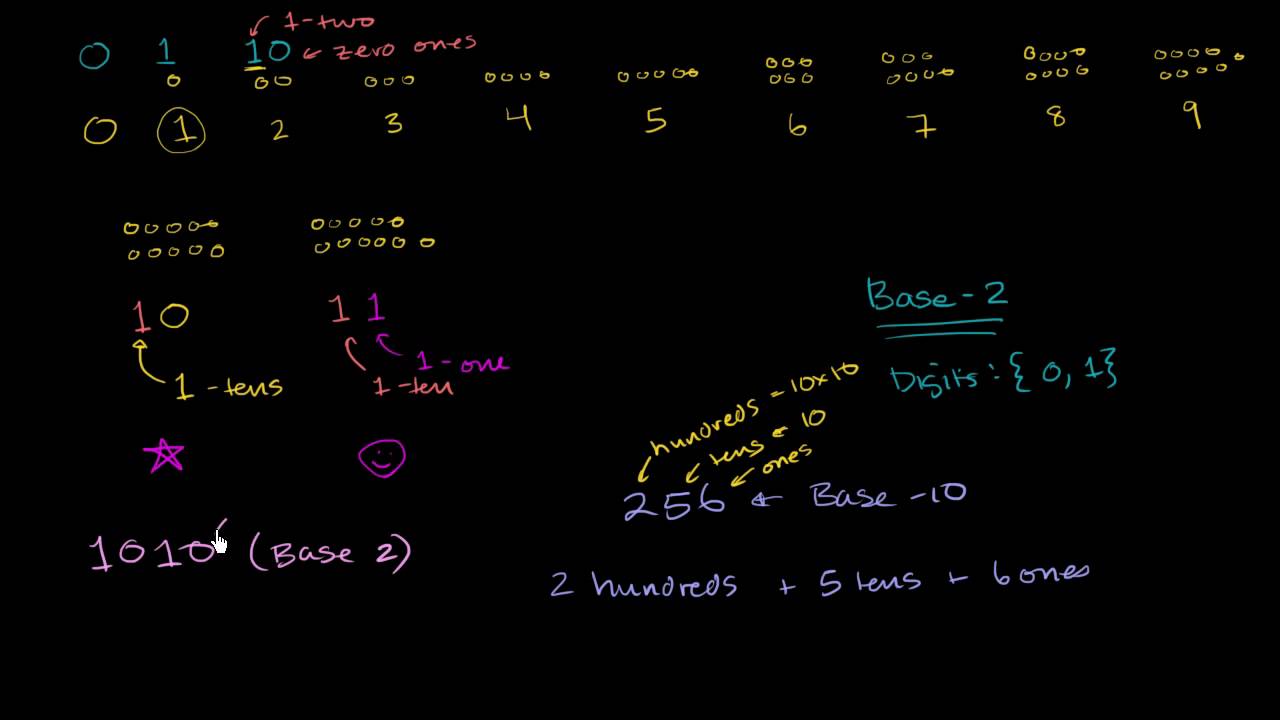 1-two
0 1 10 ← zero ones
0 1 2 3 4 5 6 7 8 9
10 11
Base-2
1-one
1-tens 1-ten
Digits: { 0, 1}
hundreds = 10x10
tens ← 10
ones
256 ← Base-10
1010 (Base 2)
2 hundreds + 5 tens + 6 ones